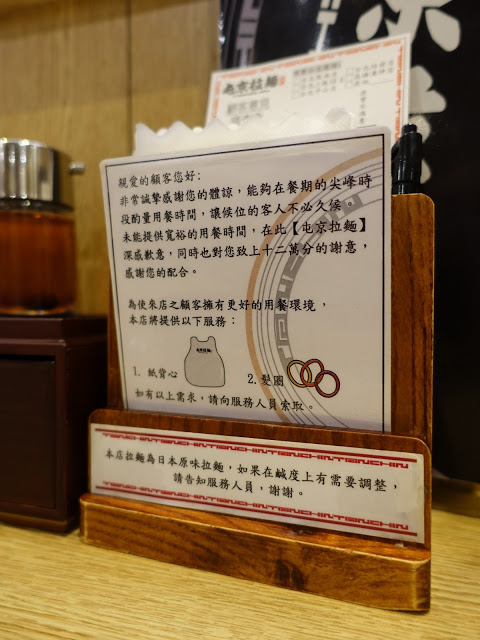 屯京拉麺
顧客意見
親愛的顧客您好:
非常誠摯感謝您的體諒，能夠在餐期的尖峰時
段酌量用餐時間，讓候位的客人不必久候。
未能提供寬裕的用餐時間，在此【屯京拉麵】
深感歉意，同時也對您致上十二萬分的謝意，
感謝您的配合。
為使來店之顧客擁有更好的用餐環境，
本店將提供以下服務：
1. 紙背心
2.髮圈
如有以上需求，請向服務人員索取。
本店拉麵為日本原味拉麵，如果在鹹度上有需要調整，
請告知服務人員，謝謝。